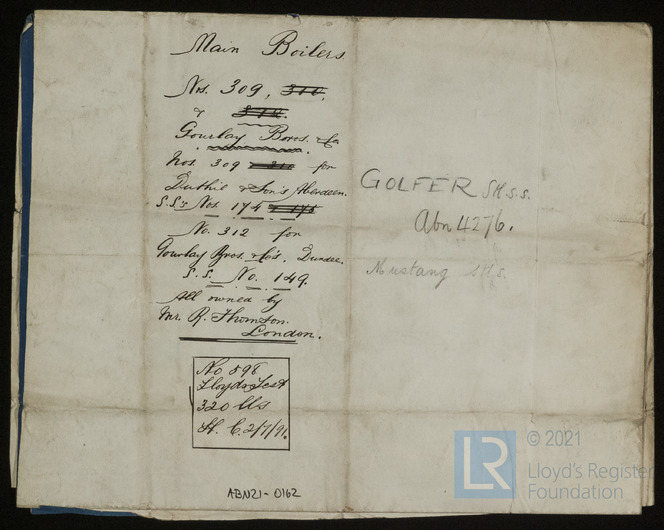 Main Boilers.
Nos. 309, 310,
&
Gourlay Bros. & Co
Nos. 309 for
Duthie & Son's Aberdeen.
S.S.s Nos. 174
No. 312 for
Gourlay Bros. & Co's. Dundee.
S.S. No. 149.
All owned by
Mr. R. Thomson.
London.
No 598
Lloyds Test
320 lbs
2/7/91.
ABN21-0162
GOLFER SK.s.s.
Abn 4276.
Mustang
LR
© 2021
Lloyd's Register
Foundation